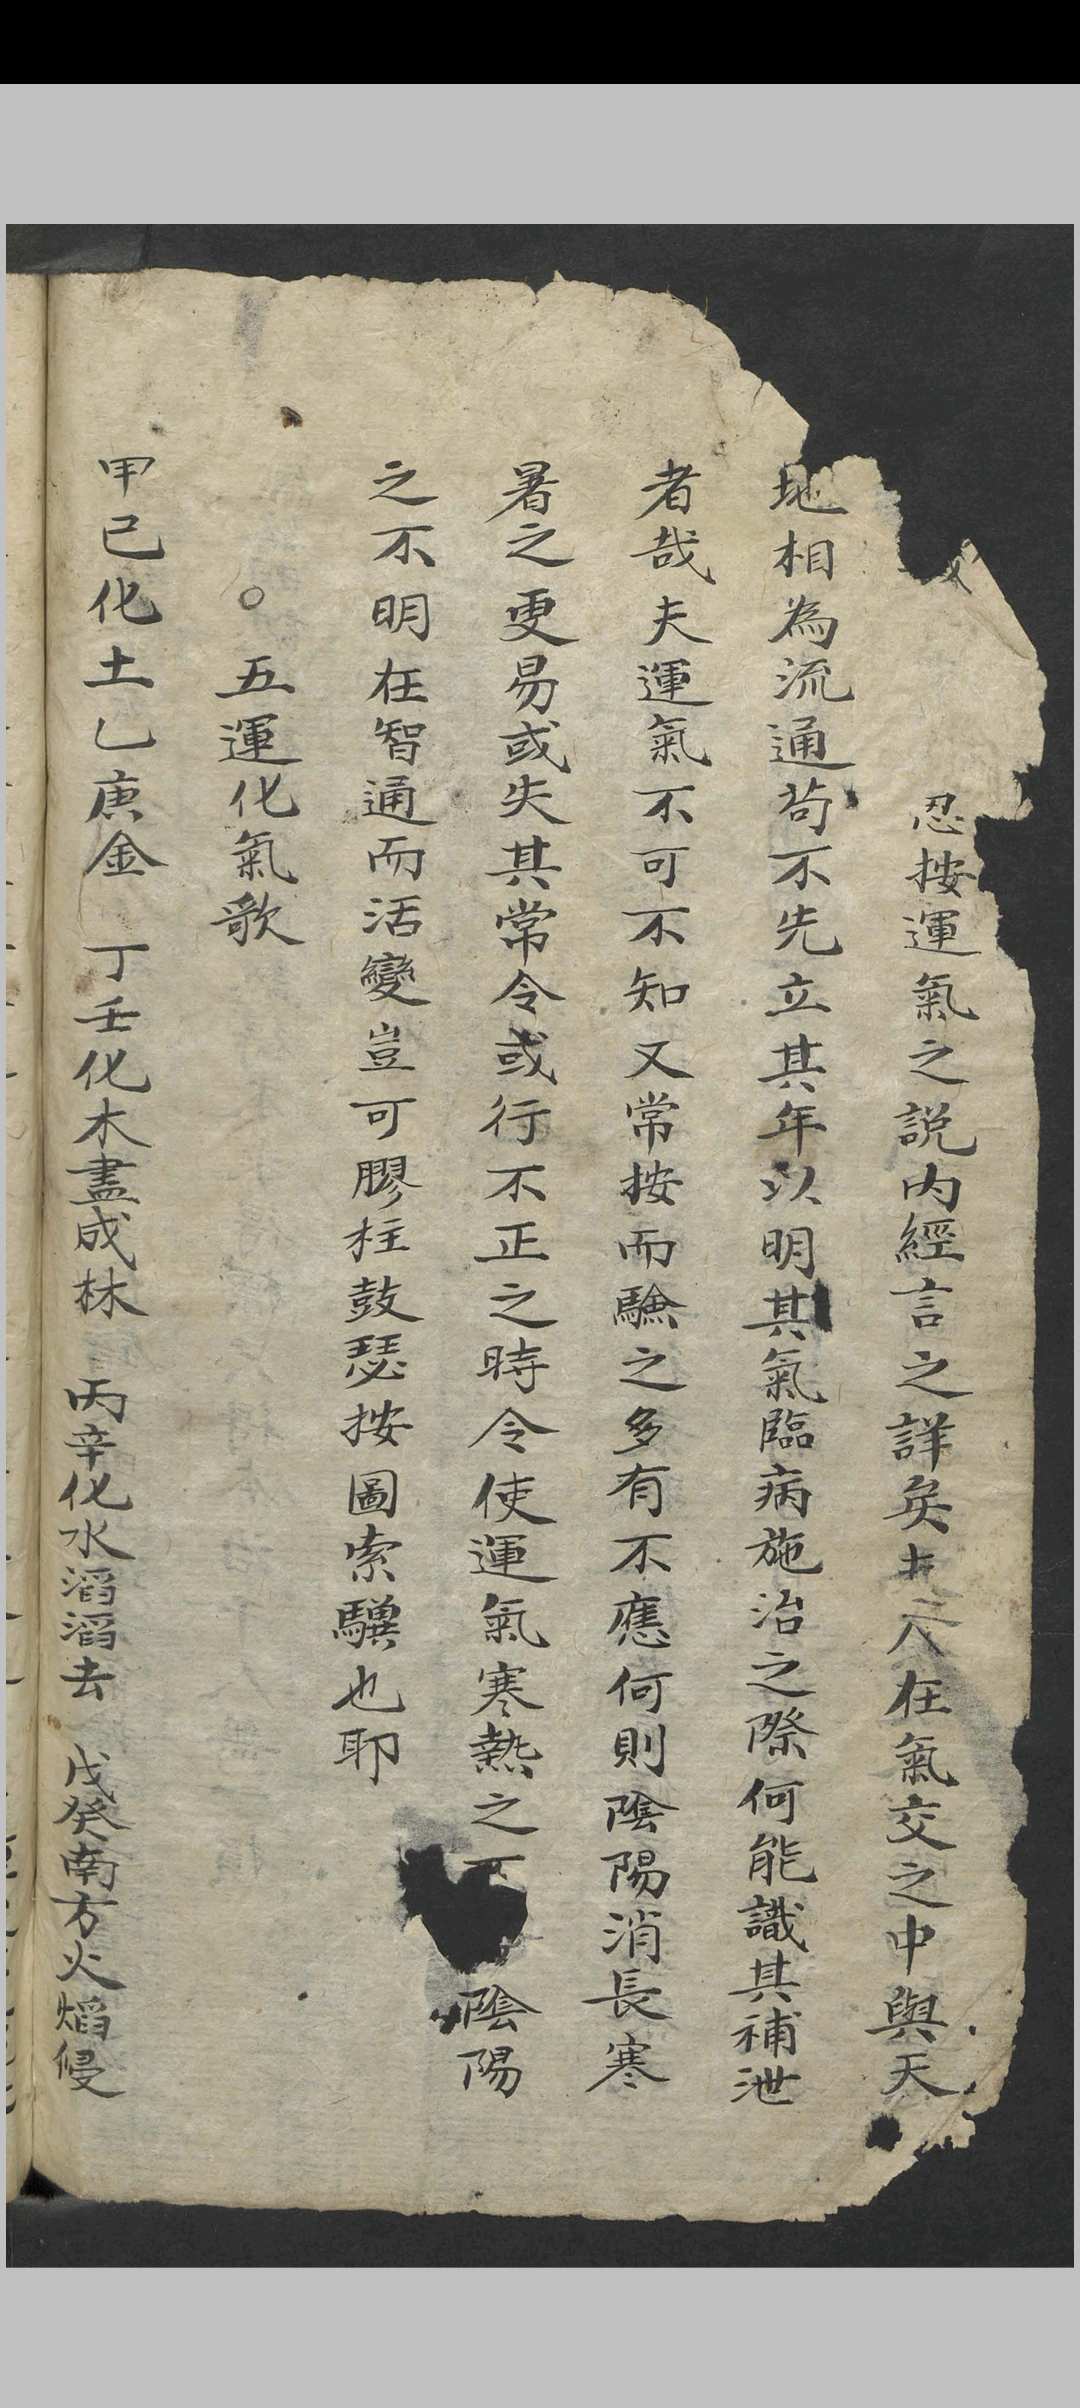 忍按運氣之說内經言之詳矣夫人在氣交之中與天
地相為流通茍不先立其年以明其氣臨病施治之際何能識其補泄
者哉夫運氣不可不知又常按而驗之多有不應何則陰陽消長寒
暑之更易或失其常令或行不正之時令使運氣寒熱之不陰陽
之不明在智通而活變豈可膠柱鼓瑟按圖索驥也耶
○五運化氣歌
甲己化土乙庚金 丁壬化木盡成林 丙辛化水滔滔去 戊癸南方火焰侵